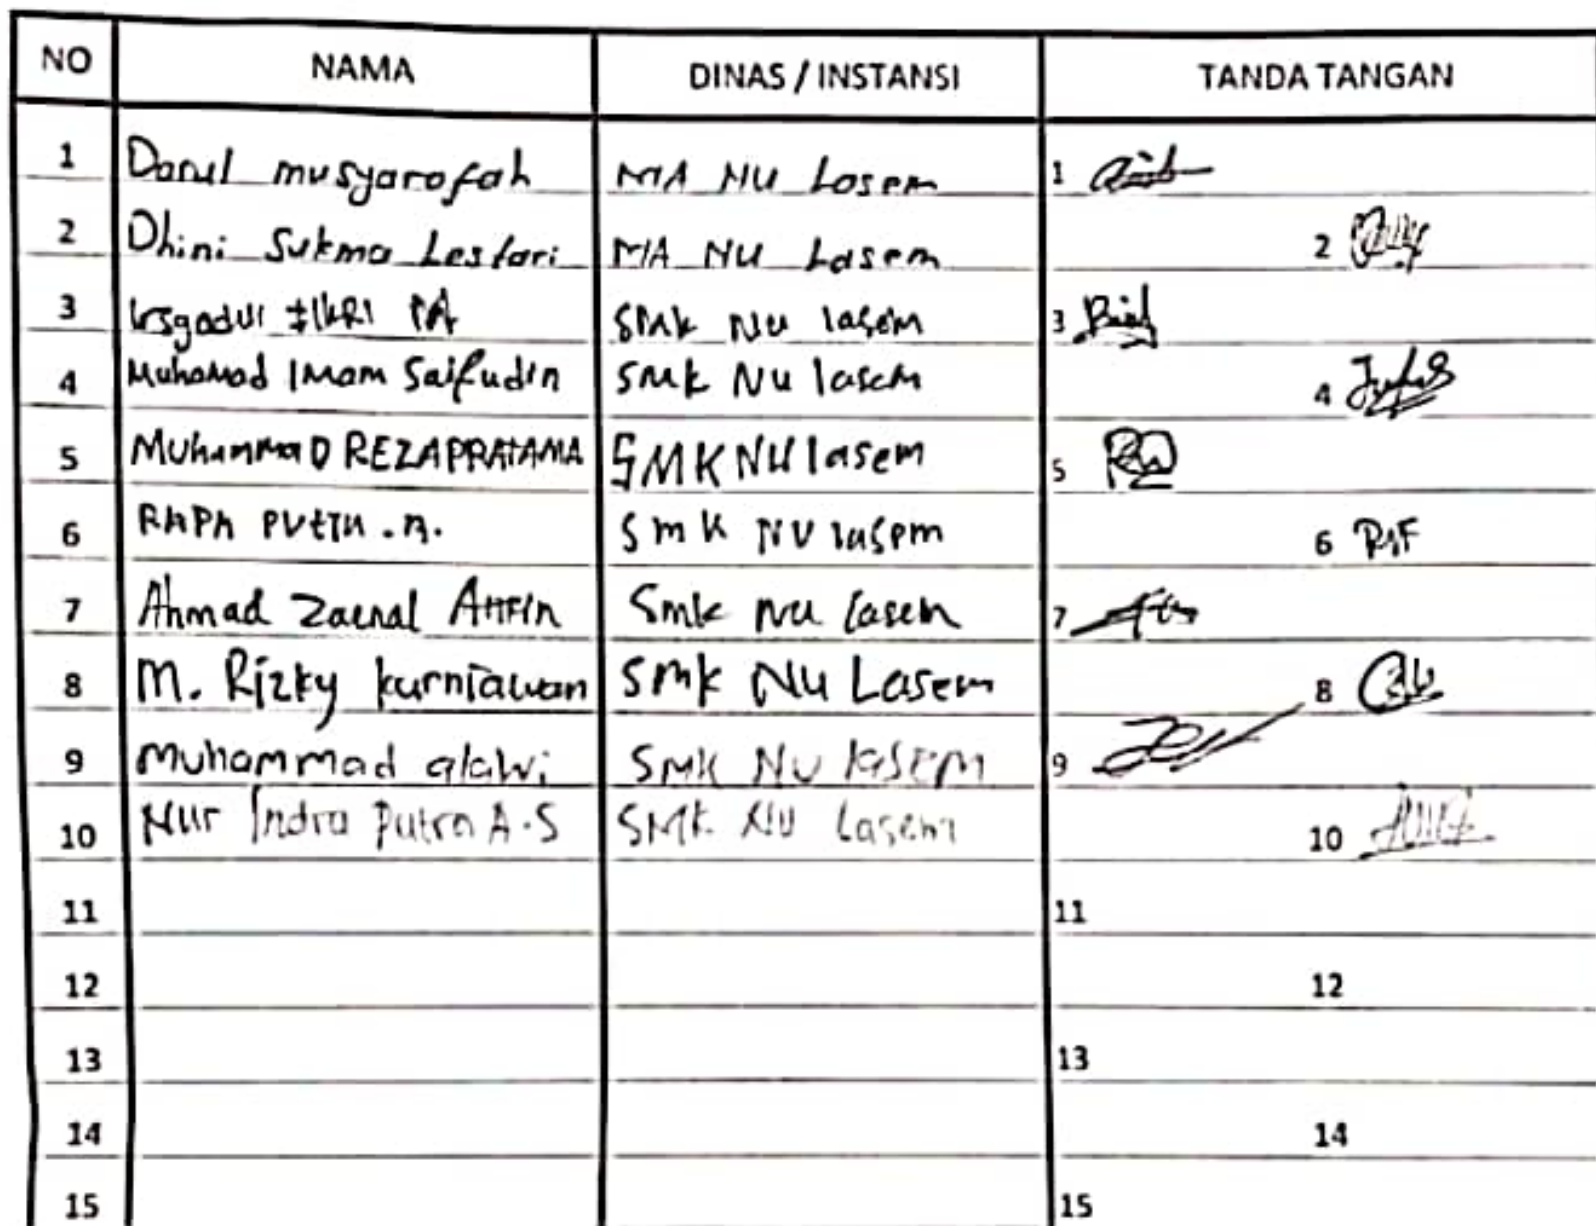 NO NAMA DINAS / INSTANSI TANDA TANGAN
1 Darul musyarofah MA NU Lasem 1
2 Dhini Sukma Lestari MA NU Lasem 2
3 PA SMK NU lasem 3
4 Muhamad Imam Saifudin SMK NU lasem 4
5 MuhammaD REZA PRATAMA SMK NU lasem 5
6 SMK NU lasem 6
7 Ahmad Zaenal Arifin Smk NU lasem 7
8 M. Rizky kurniawan SMK NU Lasem 8
9 Muhammad alawi SMK NU lasem 9
10 Nur Indra Putra A.S SMK NU Lasem 10
11 11
12 12
13 13
14 14
15 15